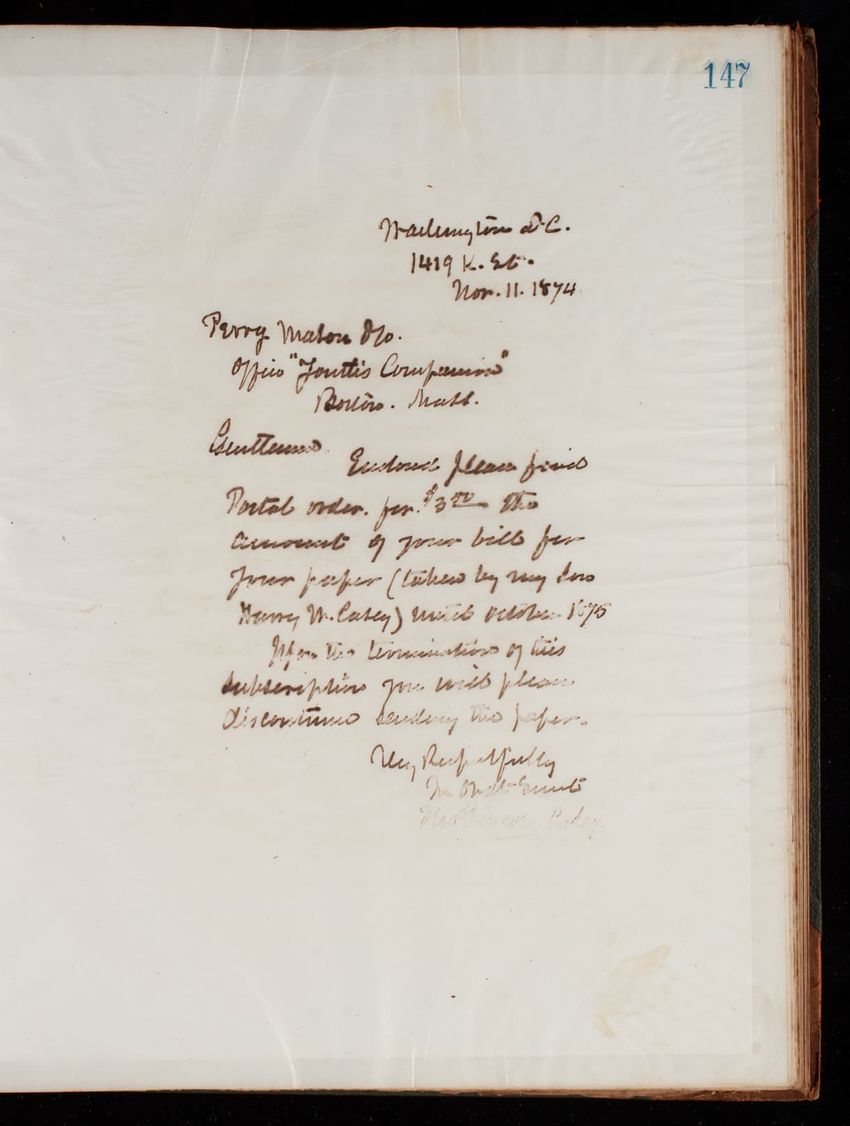 147
Washington D.C.
1419 K. St.
Nov. 11. 1874
Perry Mason & Co.
Office "Youth's Companion"
Boston. Mass.
Gentlemen
Enclosed please find
Postal order. for. $3.00 the
amount of your bill for
your paper (taken by my son
Harry W. Casey) until October 1875
Upon the termination of this
subscription you will please
discontinue sending the paper.
Very Respectfully
Yr Obdt Servt
Thos Lincoln Casey